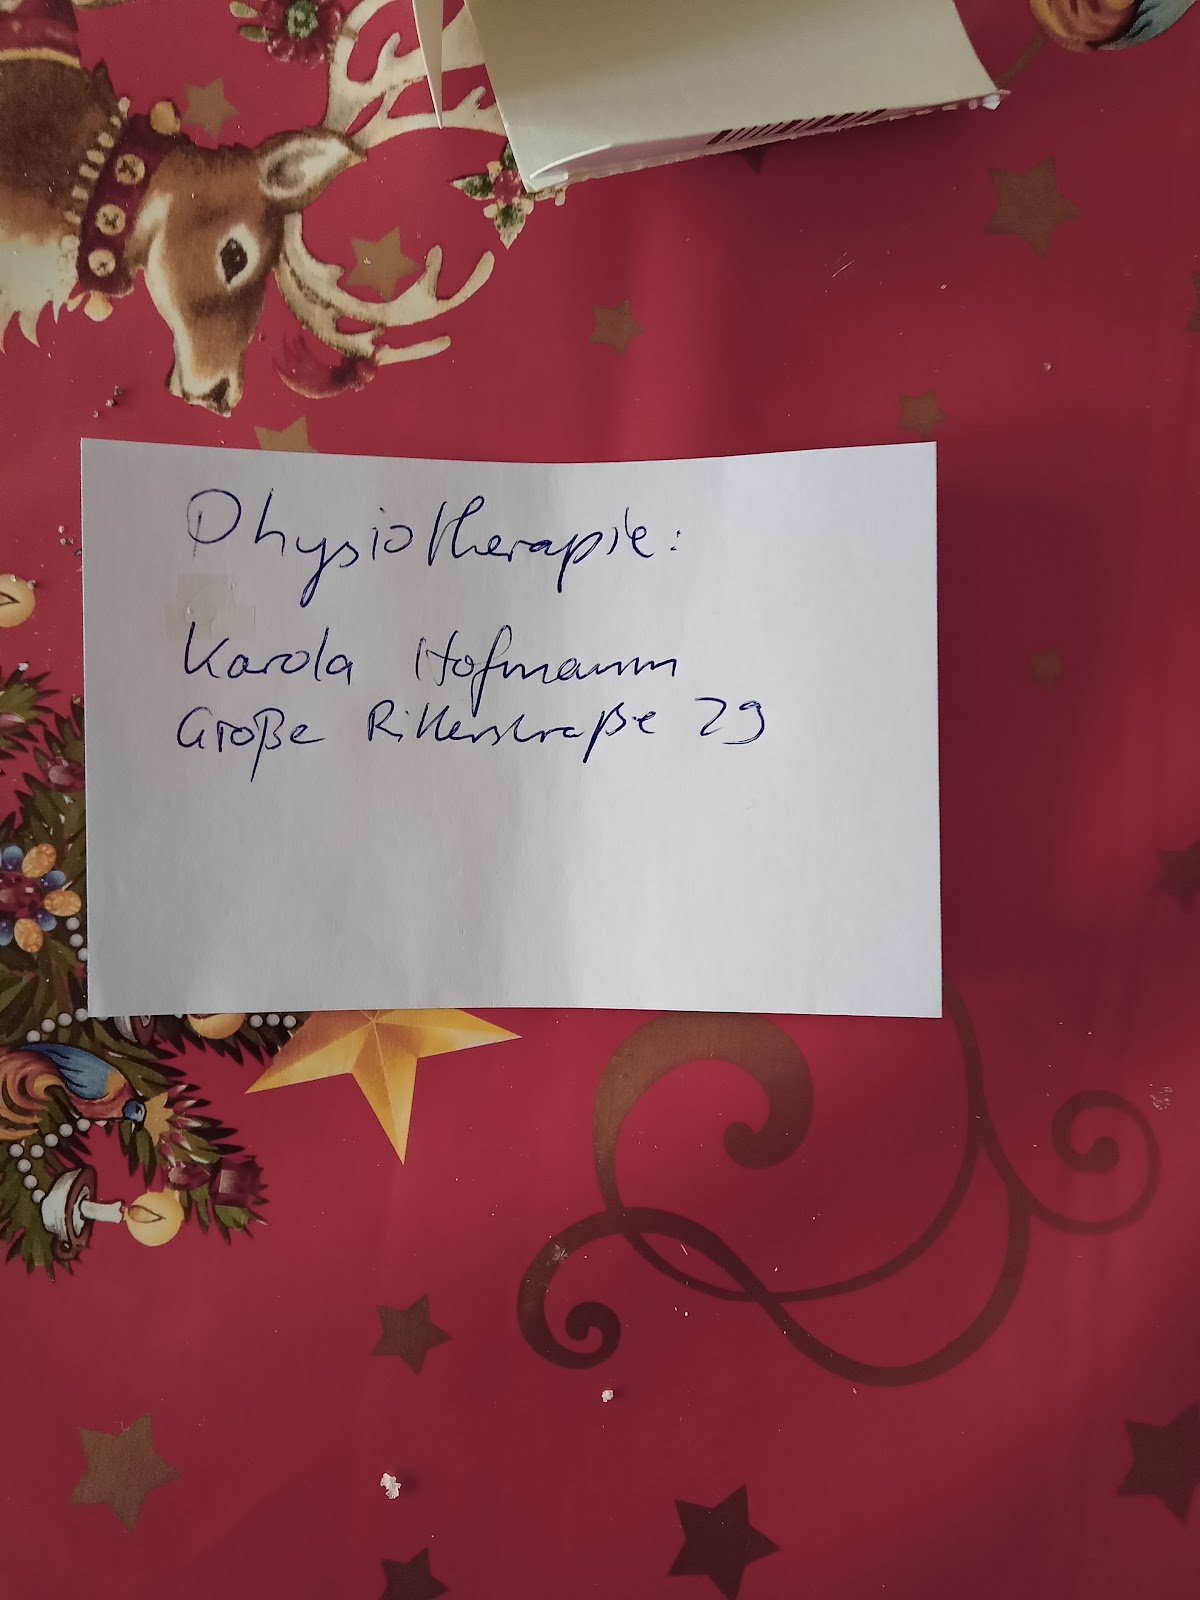 Physiotherapie:
Karola Hofmann
Große Ritterstraße 29